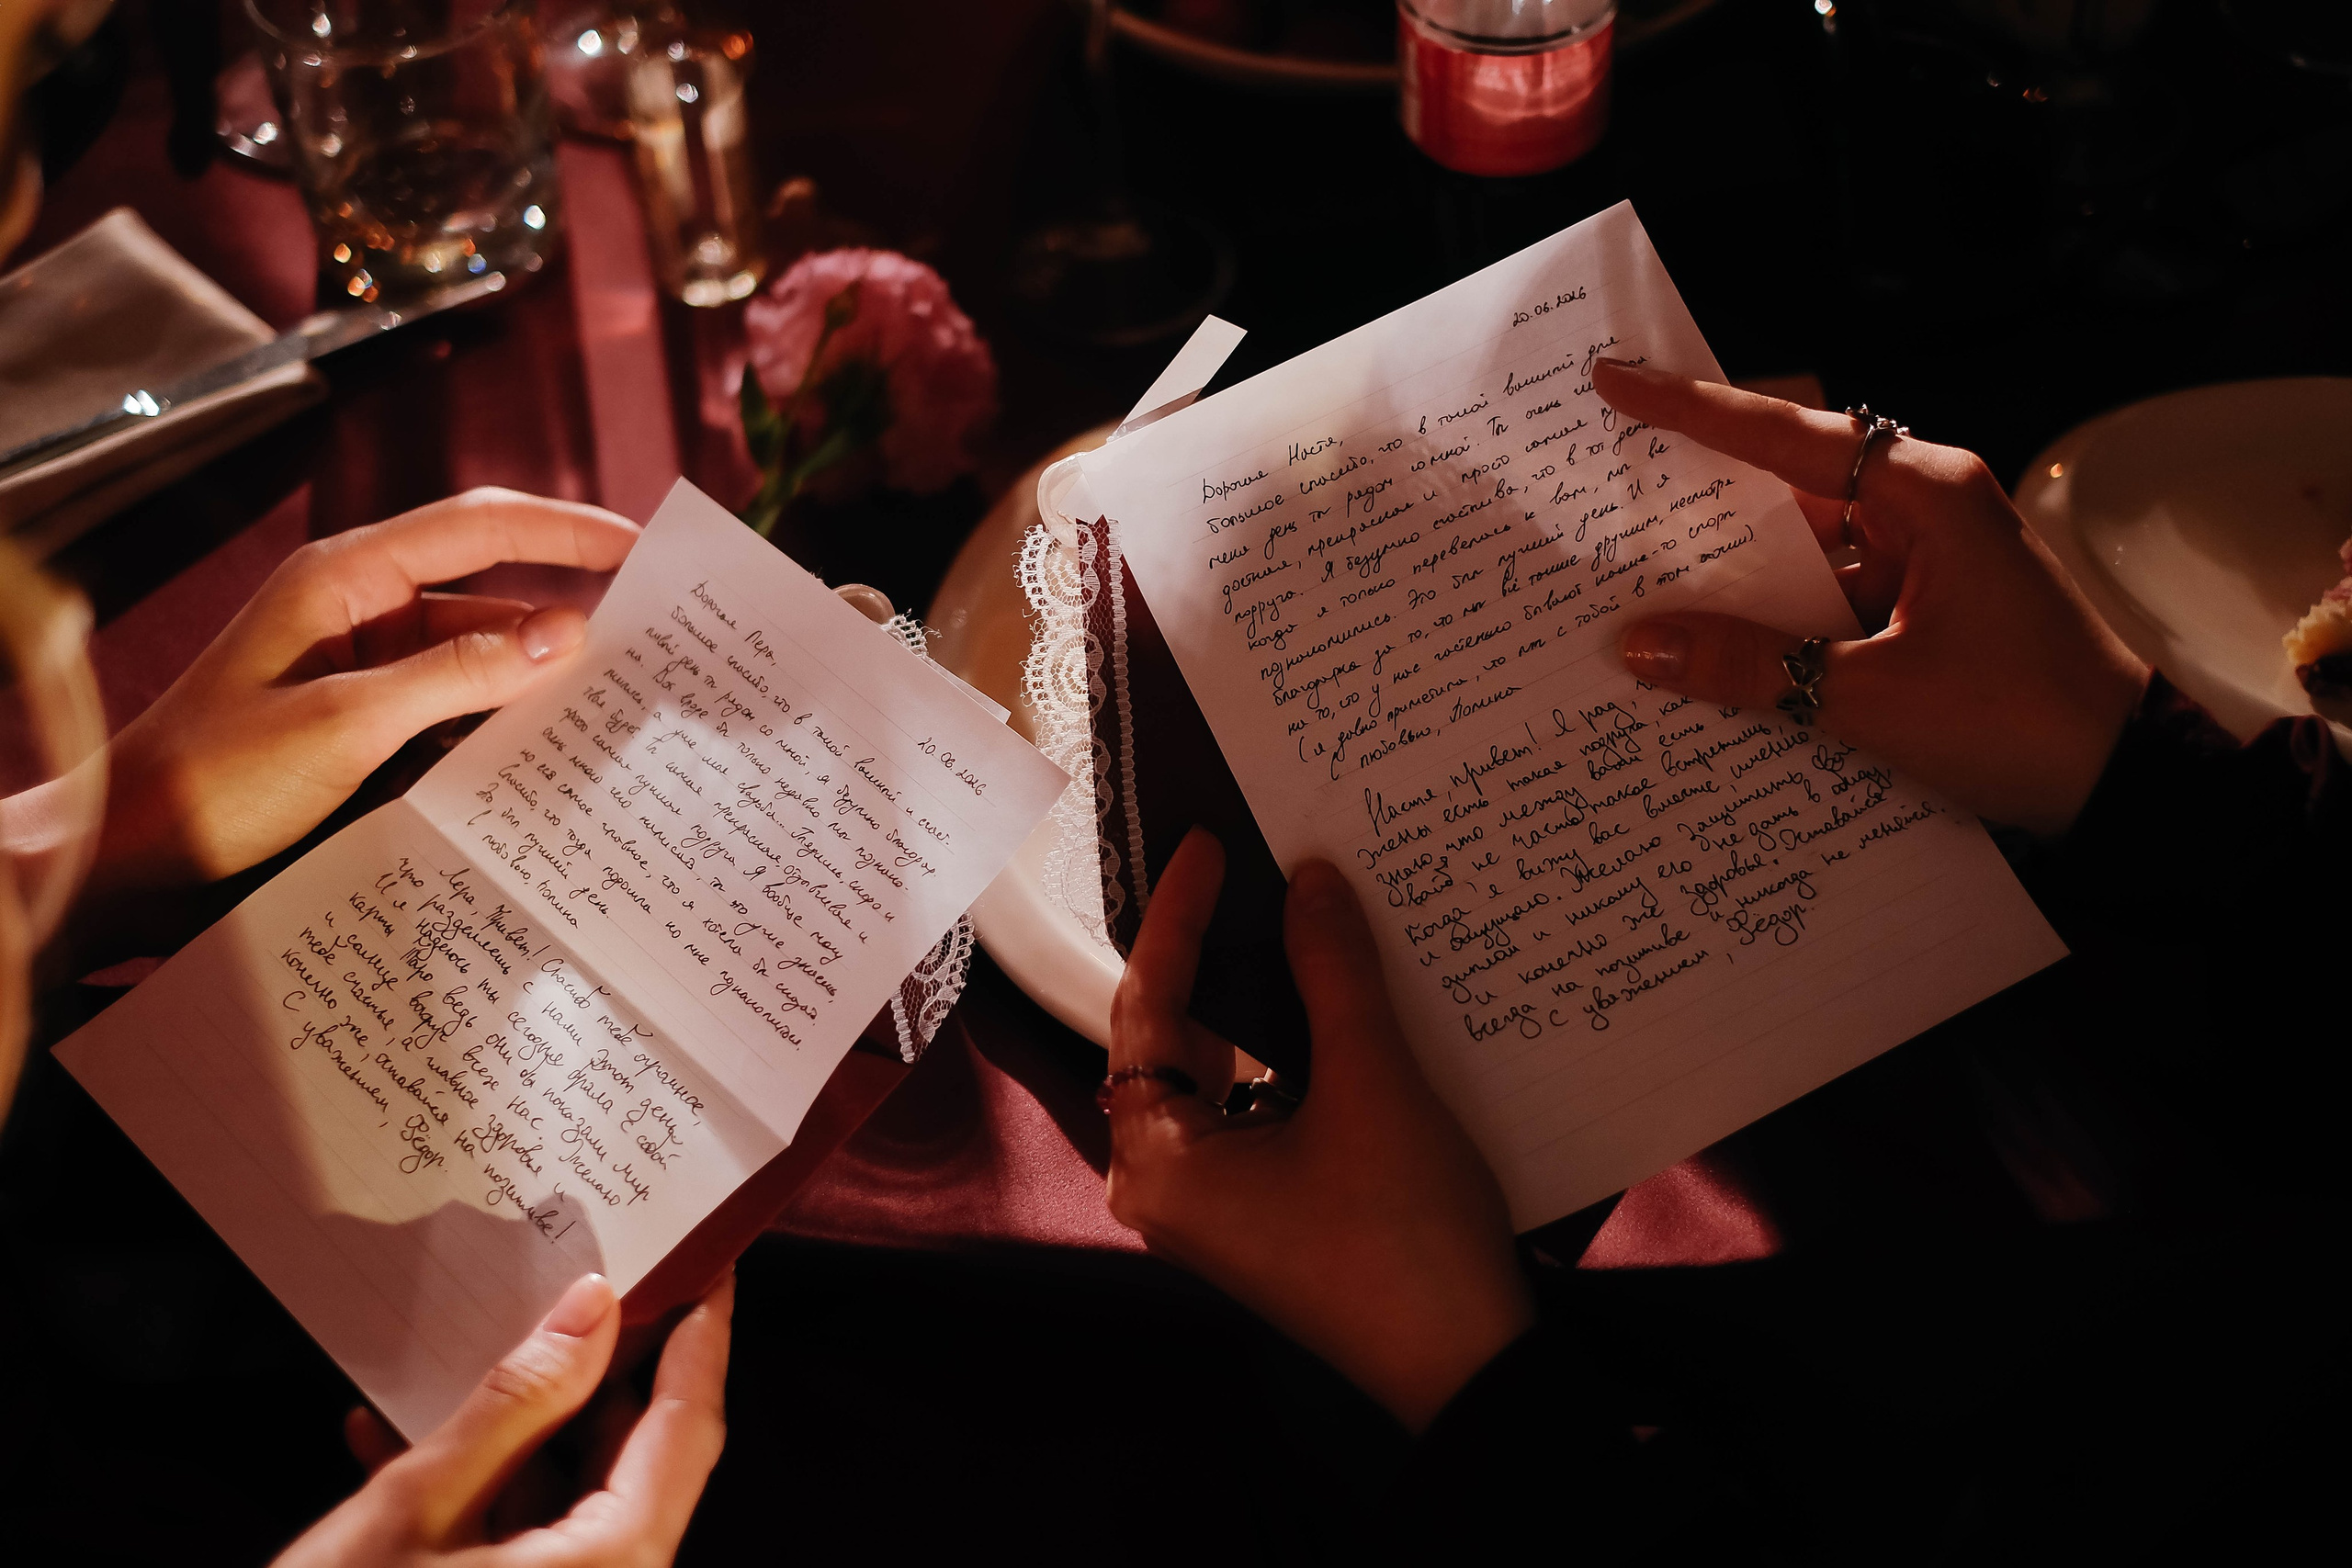 20.06.2026
Дорогая Лера,
большое спасибо, что в такой важный и счаст-
ливый день ты рядом со мной, я безумно благодар-
на. Вот вроде бы только недавно мы познако-
мились, а уже моя свадьба... Теперь, скоро и
твоя будет. Ты самая прекрасная, отзывчивая и
просто самая лучшая подруга. Я вообще могу
очень много чего написать, ты это уже знаешь,
но из самое главное, что я хотела бы сказать
Спасибо, что тогда подошла ко мне познакомиться.
Это был лучший день.
С любовью, Полина
Лера, Привет! Спасибо тебе огромное,
что разделяешь с нами этот день
И я надеюсь ты сегодня брала с собой
карты Таро ведь они бы показали мир
и солнце вокруг всех нас. Желаю
тебе счастья, а главное здоровья и
конечно же, оставайся на позитиве!
С уважением, Фёдор.
20.06.2026
Дорогая Настя,
большое спасибо, что в такой важный для
меня день ты рядом со мной. Ты очень
достойная, прекрасная и просто самая
подруга. Я безумно счастлива, что в тот день,
когда я только перевелась к вам, мы все
познакомились. Это был лучший день. И я
благодарна за то, что мы всё также дружим, несмотря
на то, что у нас частенько бывают какие-то споры
(я давно приметила, что мы с тобой в этом похожи).
С любовью, Полина
Настя, привет! Я рад,
жены есть такая подруга, как
знаю что между вами есть
вайб не часто такое встретишь,
когда я вижу вас вместе, именно
и ощущаю. Желаю защитить свой
диплом и никому его не дать в обиду,
и конечно же здоровья. Оставайся
всегда на позитиве и никогда не меняйся.
С уважением, Фёдор.